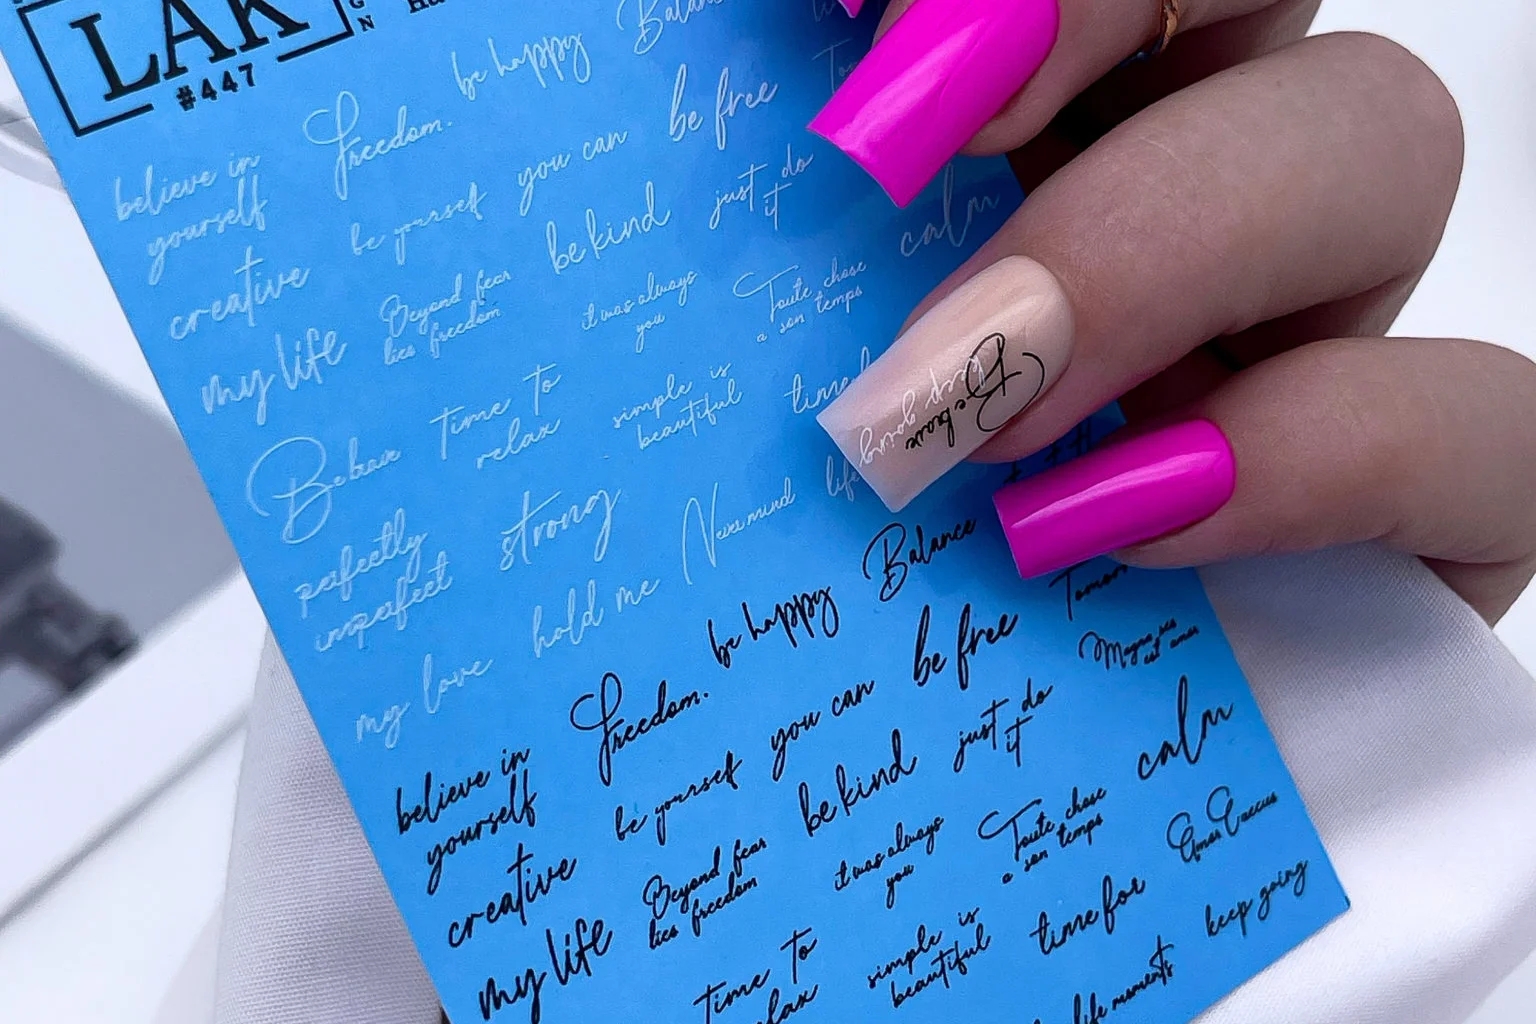 LAK
#447
G
N
be happy
Balance
Freedom.
be free
believe in
yourself
be yourself
you can
just do
it
creative
be kind
calm
Beyond fear
lies freedom
it was always
you
Toute chose
a son temps
my life
Time To
relax
simple is
beautiful
time
Behave
perfectly
imperfect
strong
Nevermind
life
my love
hold me
keep going
Behave
be happy
Balance
Freedom.
be free
believe in
yourself
be yourself
you can
just do
it
Magna res
est amor
creative
be kind
calm
Beyond fear
lies freedom
it was always
you
Toute chose
a son temps
Amor Caecus
my life
Time To
relax
simple is
beautiful
time for
keep going
life moments